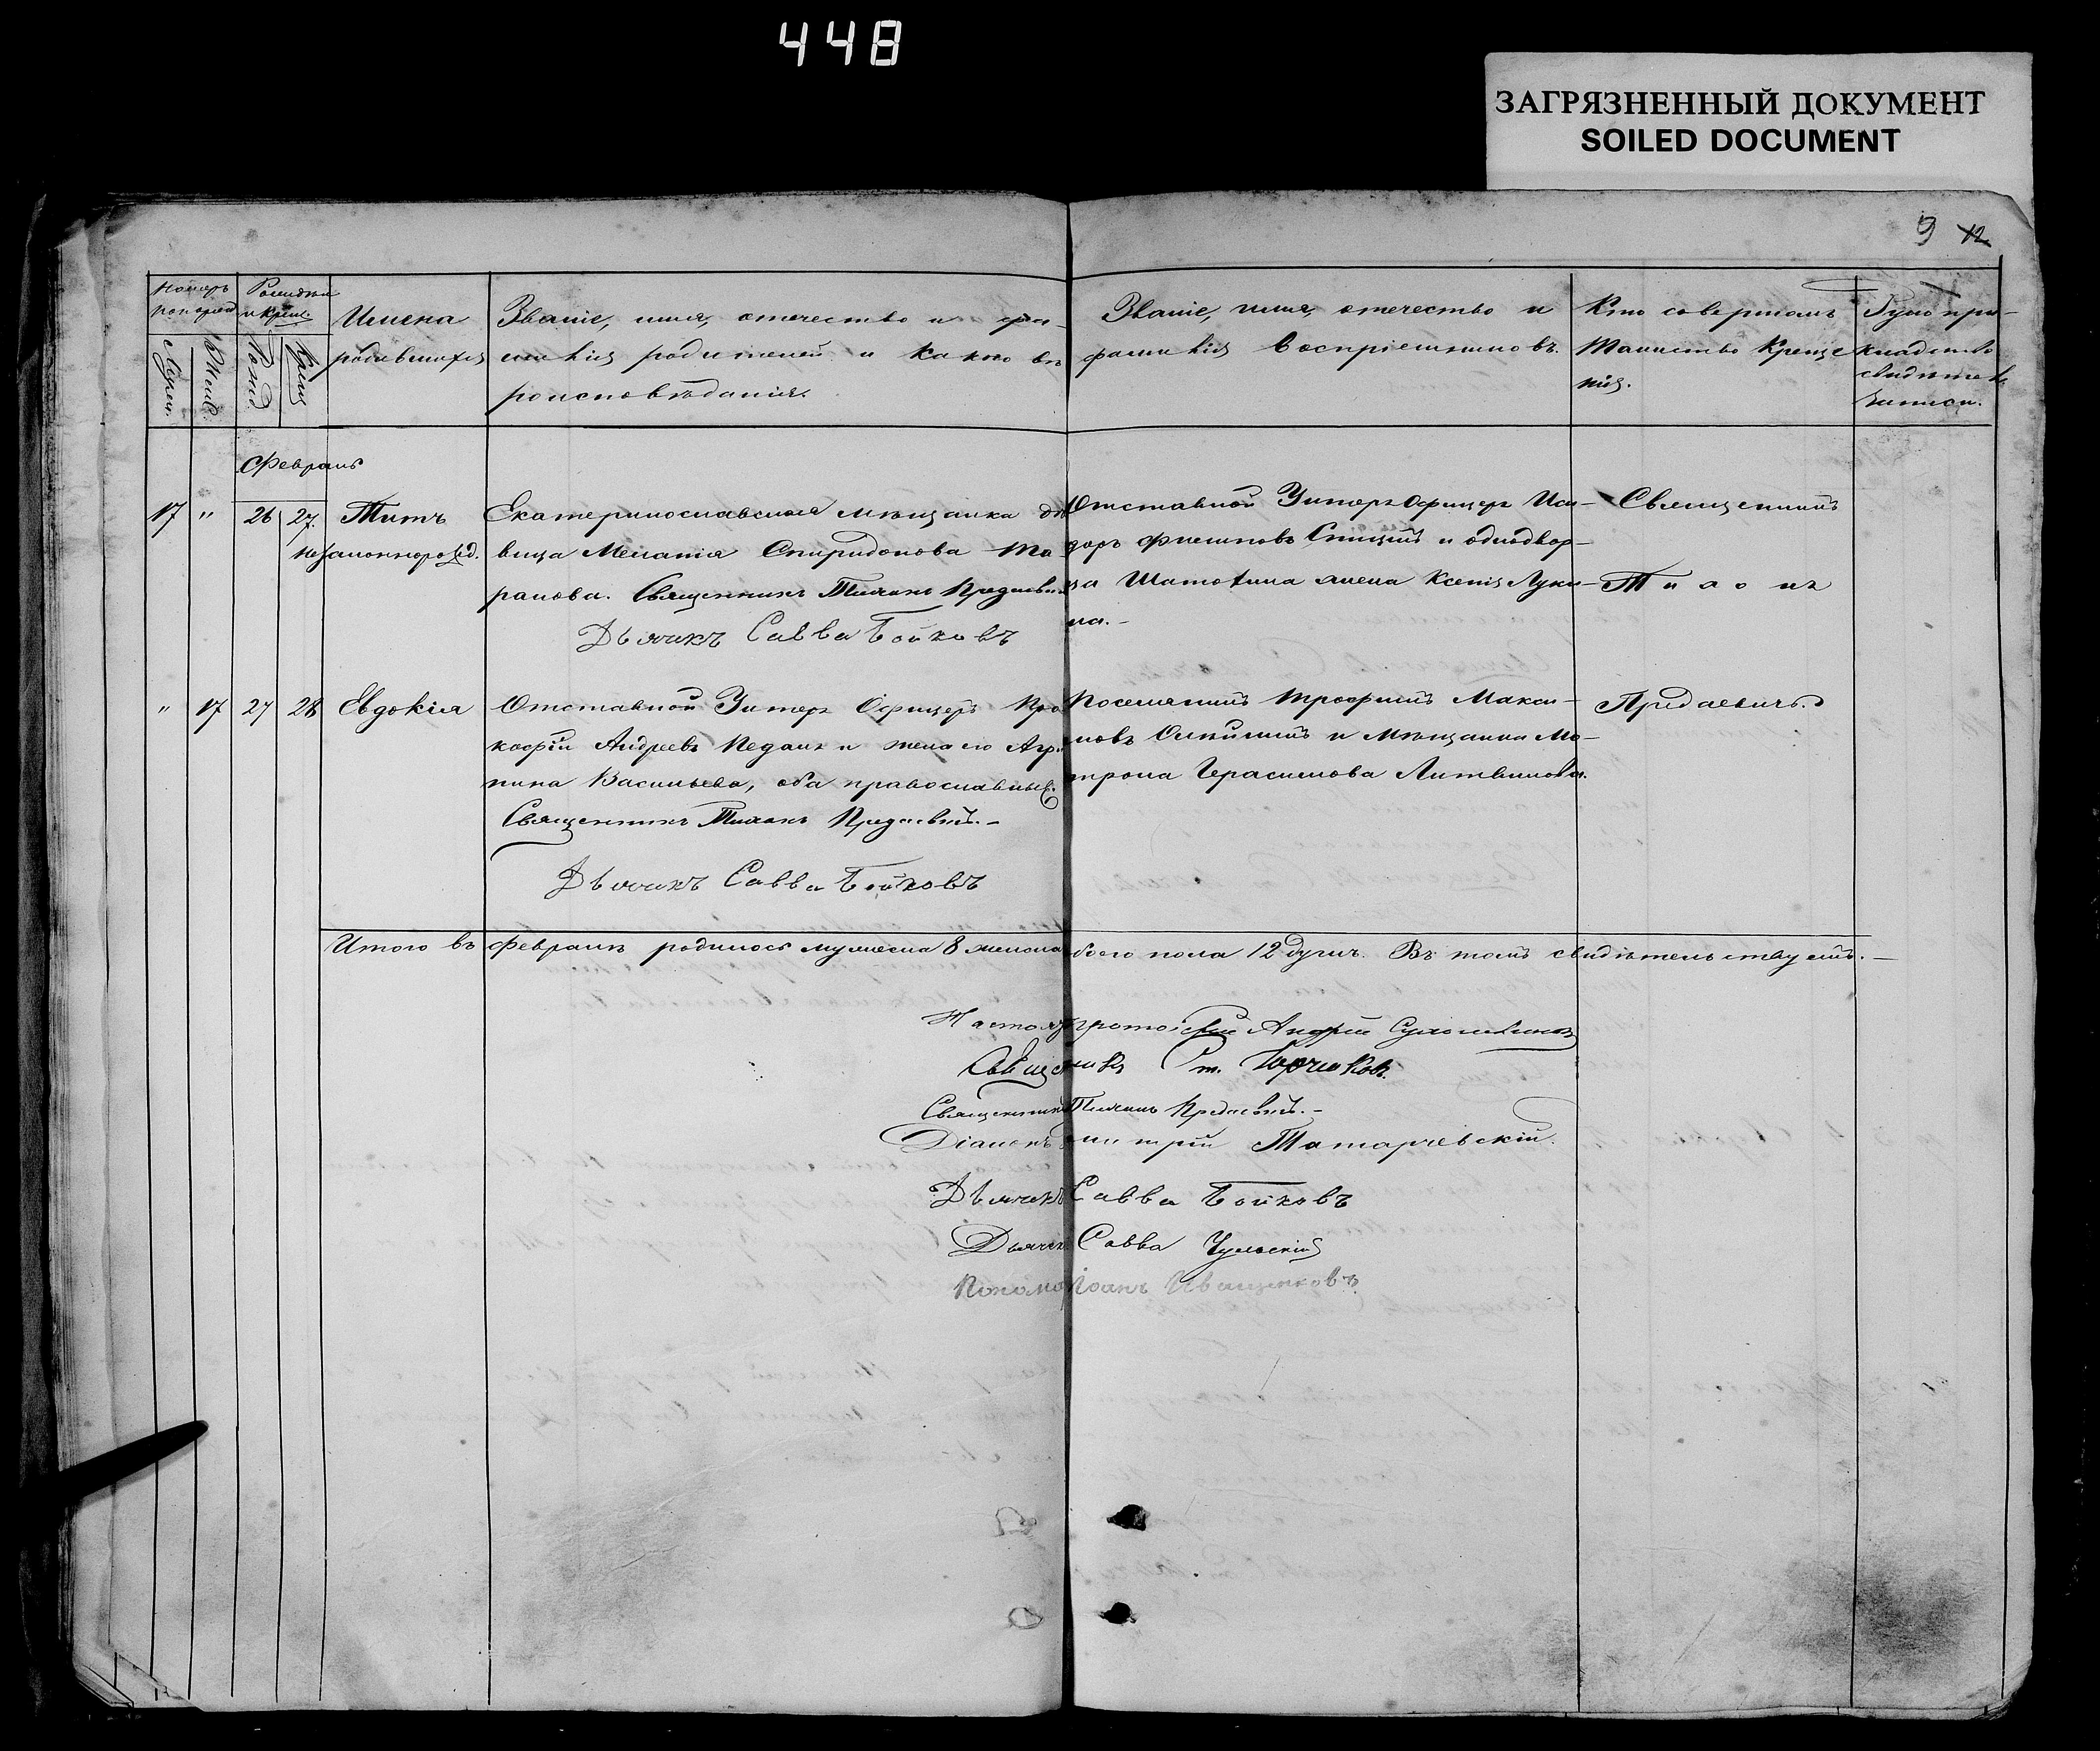 448
ЗАГРЯЗНЕННЫЙ ДОКУМЕНТ
SOILED DOCUMENT
9 12
Имена
родившихся
Званіе, имя, отечество и фа-
милія родителей и какого вѣ
роисповѣданія.
Званіе, имя, отечество и
фамилія воспріемниковъ.
Кто совершалъ
Таинство Креще
нія.
Рукопри-
кладство
свидѣтел.
записи.
Февраль
17 " 26 27. Титъ
незаконнорожд.
Екатеринославская мѣщанка дѣ
вица Меланія Спиридонова Та
ранова. Священникъ Тихонъ Придаевичъ
Дьячикъ Савва Бойковъ
Отставной Унтеръ Офицеръ Иси-
доръ Филиповъ и однодвор-
ца жена Ксенія Луки-
на.-
Священникъ
Тихонъ
" 17 27 28 Евдокія
Отставной Унтеръ Офицеръ Про
кофій Андреевъ Педанъ и жена его Агри
пина Васильева, оба православные.
Священникъ Тихонъ Придаевичъ.-
Дьячикъ Савва Бойковъ
Поселянинъ Трофимъ Макси-
мовъ и Мѣщанка Ма-
трона Герасимова Литвинова.
Придаевичъ.
Итого въ февралѣ родилось мужеска 8 женска
обоего пола 12 душъ. Въ томъ свидѣтельствуемъ.-
протоіерей Андрей
Священникъ
Священникъ Тихонъ Придаевичъ.-
Діаконъ Димитрій Татарчевскій.
Дьячикъ Савва Бойковъ
Дьячек Савва
Пономарь Іоанъ Иващенковъ